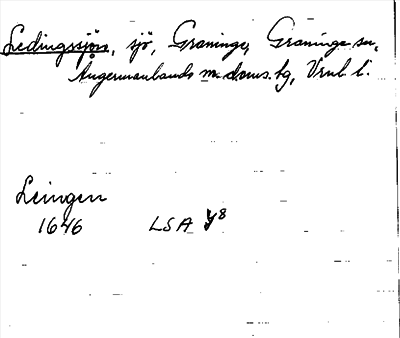 Ledingssjön, sjö, Graninge, Graninge sn,
Ångermanlands m. doms. tg, Vnl. l.
Leingen
1646 LSA Y8